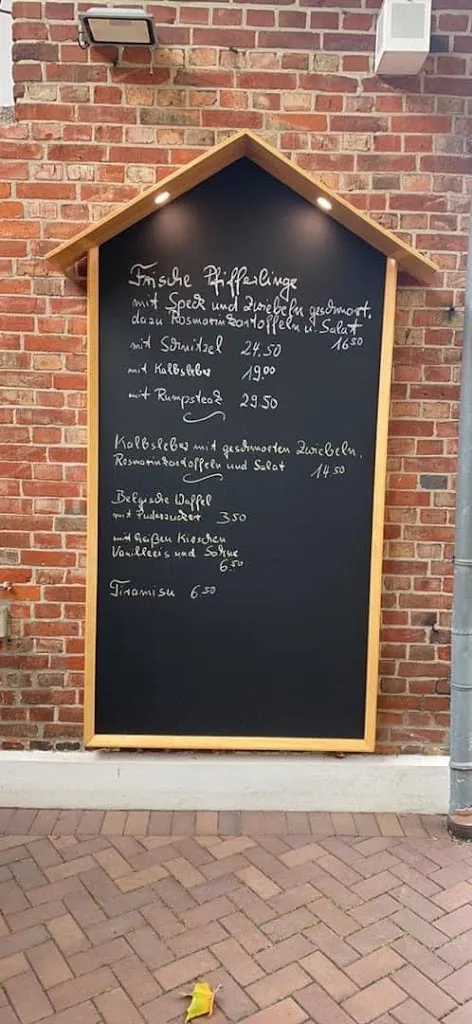 Frische Pfifferlinge
mit Speck und Zwiebeln geschmort,
dazu Rosmarinkartoffeln u. Salat
16 50
mit Schnitzel 24,50
mit Kalbsleber 19,00
mit Rumpsteak 29,50
Kalbsleber mit geschmorten Zwiebeln,
Rosmarinkartoffeln und Salat 14,50
Belgische Waffel
mit Puderzucker 3,50
mit heißen Kirschen
Vanilleeis und Sahne
6,50
Tiramisu 6,50